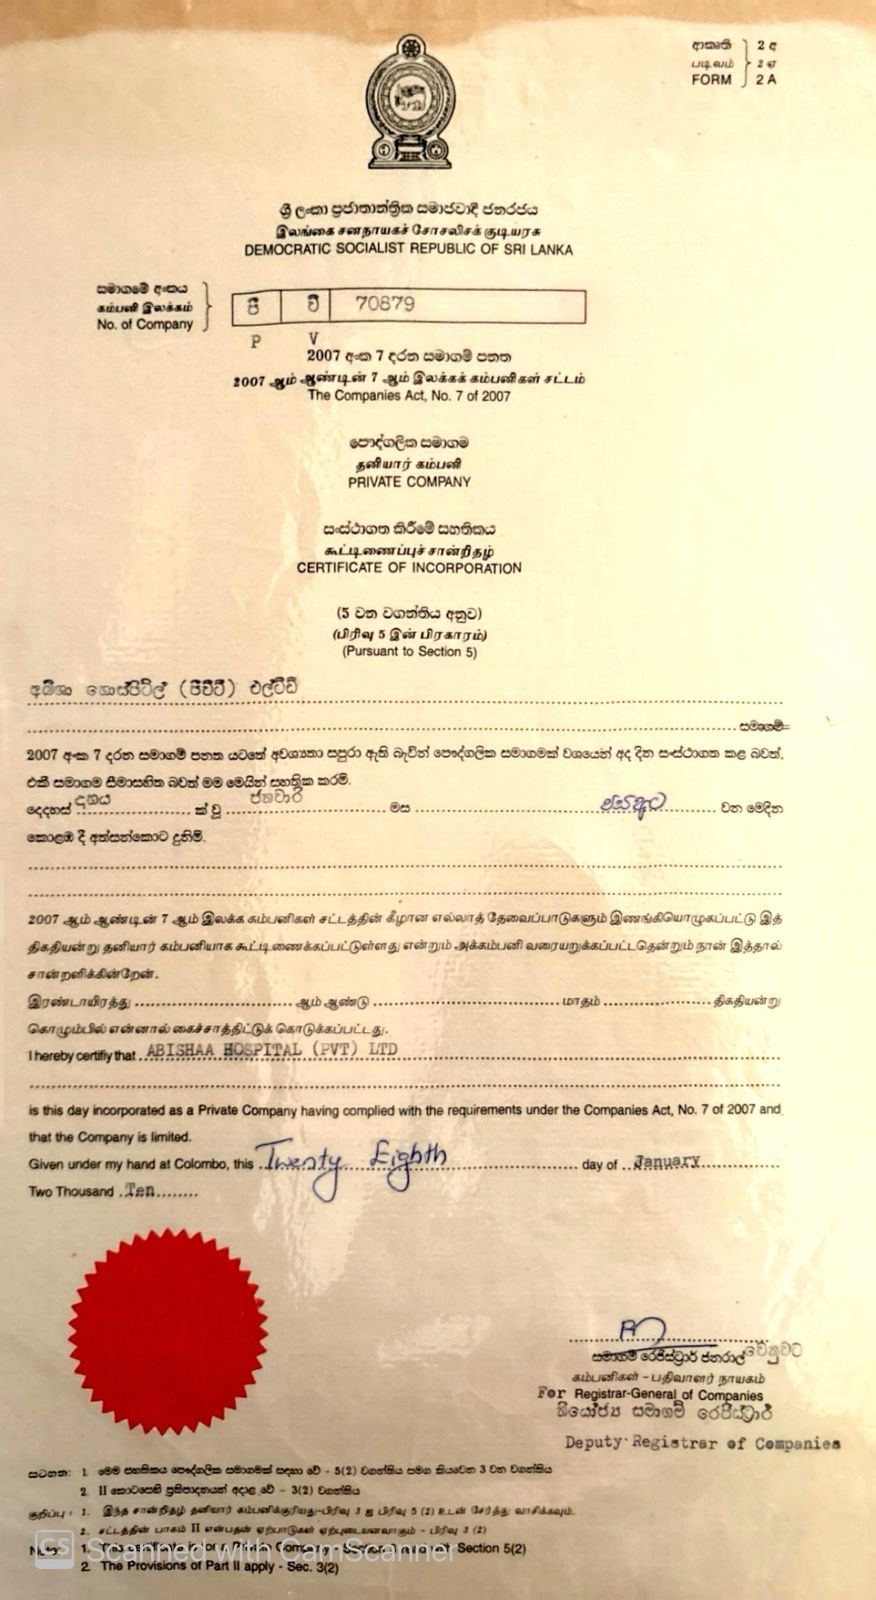 ආකෘති 2 අ
படிவம் 2 ஏ
FORM 2 A
ශ්‍රී ලංකා ප්‍රජාතාන්ත්‍රික සමාජවාදී ජනරජය
இலங்கை சனநாயகச் சோசலிசக் குடியரசு
DEMOCRATIC SOCIALIST REPUBLIC OF SRI LANKA
සමාගමේ අංකය
கம்பனி இலக்கம்
No. of Company
පී වී 70879
P V
2007 අංක 7 දරන සමාගම් පනත
2007 ஆம் ஆண்டின் 7 ஆம் இலக்கக் கம்பனிகள் சட்டம்
The Companies Act, No. 7 of 2007
පෞද්ගලික සමාගම
தனியார் கம்பனி
PRIVATE COMPANY
සංස්ථාගත කිරීමේ සහතිකය
கூட்டிணைப்புச் சான்றிதழ்
CERTIFICATE OF INCORPORATION
(5 වන වගන්තිය අනුව)
(பிரிவு 5 இன் பிரகாரம்)
(Pursuant to Section 5)
අබිශා හොස්පිටල් (පීවීටී) එල්ටීඩී
සමාගම්
2007 අංක 7 දරන සමාගම් පනත යටතේ අවශ්‍යතා සපුරා ඇති බැවින් පෞද්ගලික සමාගමක් වශයෙන් අද දින සංස්ථාගත කළ බවත්,
එකී සමාගම සීමාසහිත බවත් මම මෙයින් සහතික කරමි.
දෙදහස් දහය ක් වූ ජනවාරි මස විසිඅට වන මෙදින
කොළඹ දී අත්සන්කොට දුනිමි.
2007 ஆம் ஆண்டின் 7 ஆம் இலக்க கம்பனிகள் சட்டத்தின் கீழான எல்லாத் தேவைப்பாடுகளும் இணங்கியொழுகப்பட்டு இத்
திகதியன்று தனியார் கம்பனியாக கூட்டிணைக்கப்பட்டுள்ளது என்றும் அக்கம்பனி வரையறுக்கப்பட்டதென்றும் நான் இத்தால்
சான்றளிக்கின்றேன்.
இரண்டாயிரத்து ஆம் ஆண்டு மாதம் திகதியன்று
கொழும்பில் என்னால் கைச்சாத்திட்டுக் கொடுக்கப்பட்டது.
I hereby certifiy that ABISHAA HOSPITAL (PVT) LTD
is this day incorporated as a Private Company having complied with the requirements under the Companies Act, No. 7 of 2007 and
that the Company is limited.
Given under my hand at Colombo, this Twenty Eighth day of January
Two Thousand Ten
සමාගම් රෙජිස්ට්‍රාර් ජනරාල් වෙනුවට
கம்பனிகள் - பதிவாளர் நாயகம்
For Registrar-General of Companies
නියෝජ්‍ය සමාගම් රෙජිස්ට්‍රාර්
Deputy Registrar of Companies
සටහන: 1. මෙම සහතිකය පෞද්ගලික සමාගමක් සඳහා වේ - 5(2) වගන්තිය සමග කියවෙන 3 වන වගන්තිය
2. II කොටසෙහි ප්‍රතිපාදනයන් අදාළ වේ - 3(2) වගන්තිය
குறிப்பு : 1. இந்த சான்றிதழ் தனியார் கம்பனிக்குரியது-பிரிவு 3 ஐ பிரிவு 5 (2) உடன் சேர்த்து வாசிக்கவும்.
2. சட்டத்தின் பாகம் II என்பதன் ஏற்பாடுகள் ஏற்புடையனவாகும் - பிரிவு 3 (2)
Note: 1. This certificate is for a Private Company - Section 3 read with Section 5(2)
2. The Provisions of Part II apply - Sec. 3(2)
CS Scanned with CamScanner